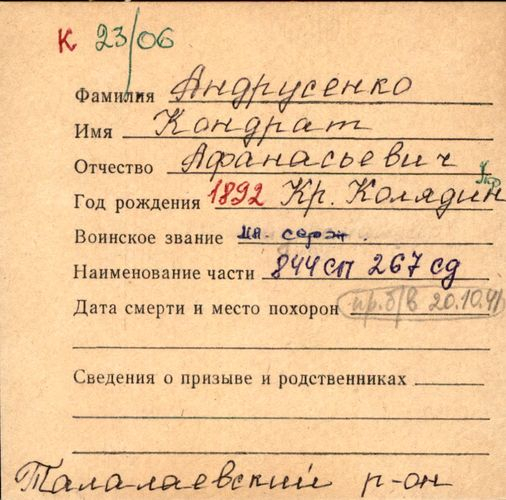 К 23/06
Фамилия Андрусенко
Имя Кондрат
Отчество Афанасьевич
Укр.
Год рождения 1892 Кр. Колядин
Воинское звание мл. серж.
Наименование части 844 сп 267 сд
Дата смерти и место похорон пр. б/в 20.10.41
Сведения о призыве и родственниках
Талалаевский р-он